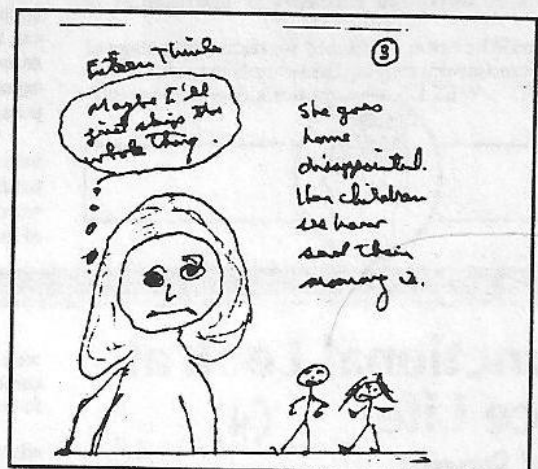 Esteem Thinks
Maybe I'll
just skip the
whole thing.
3
She goes
home
disappointed.
Her children
see how
sad their
mommy is.